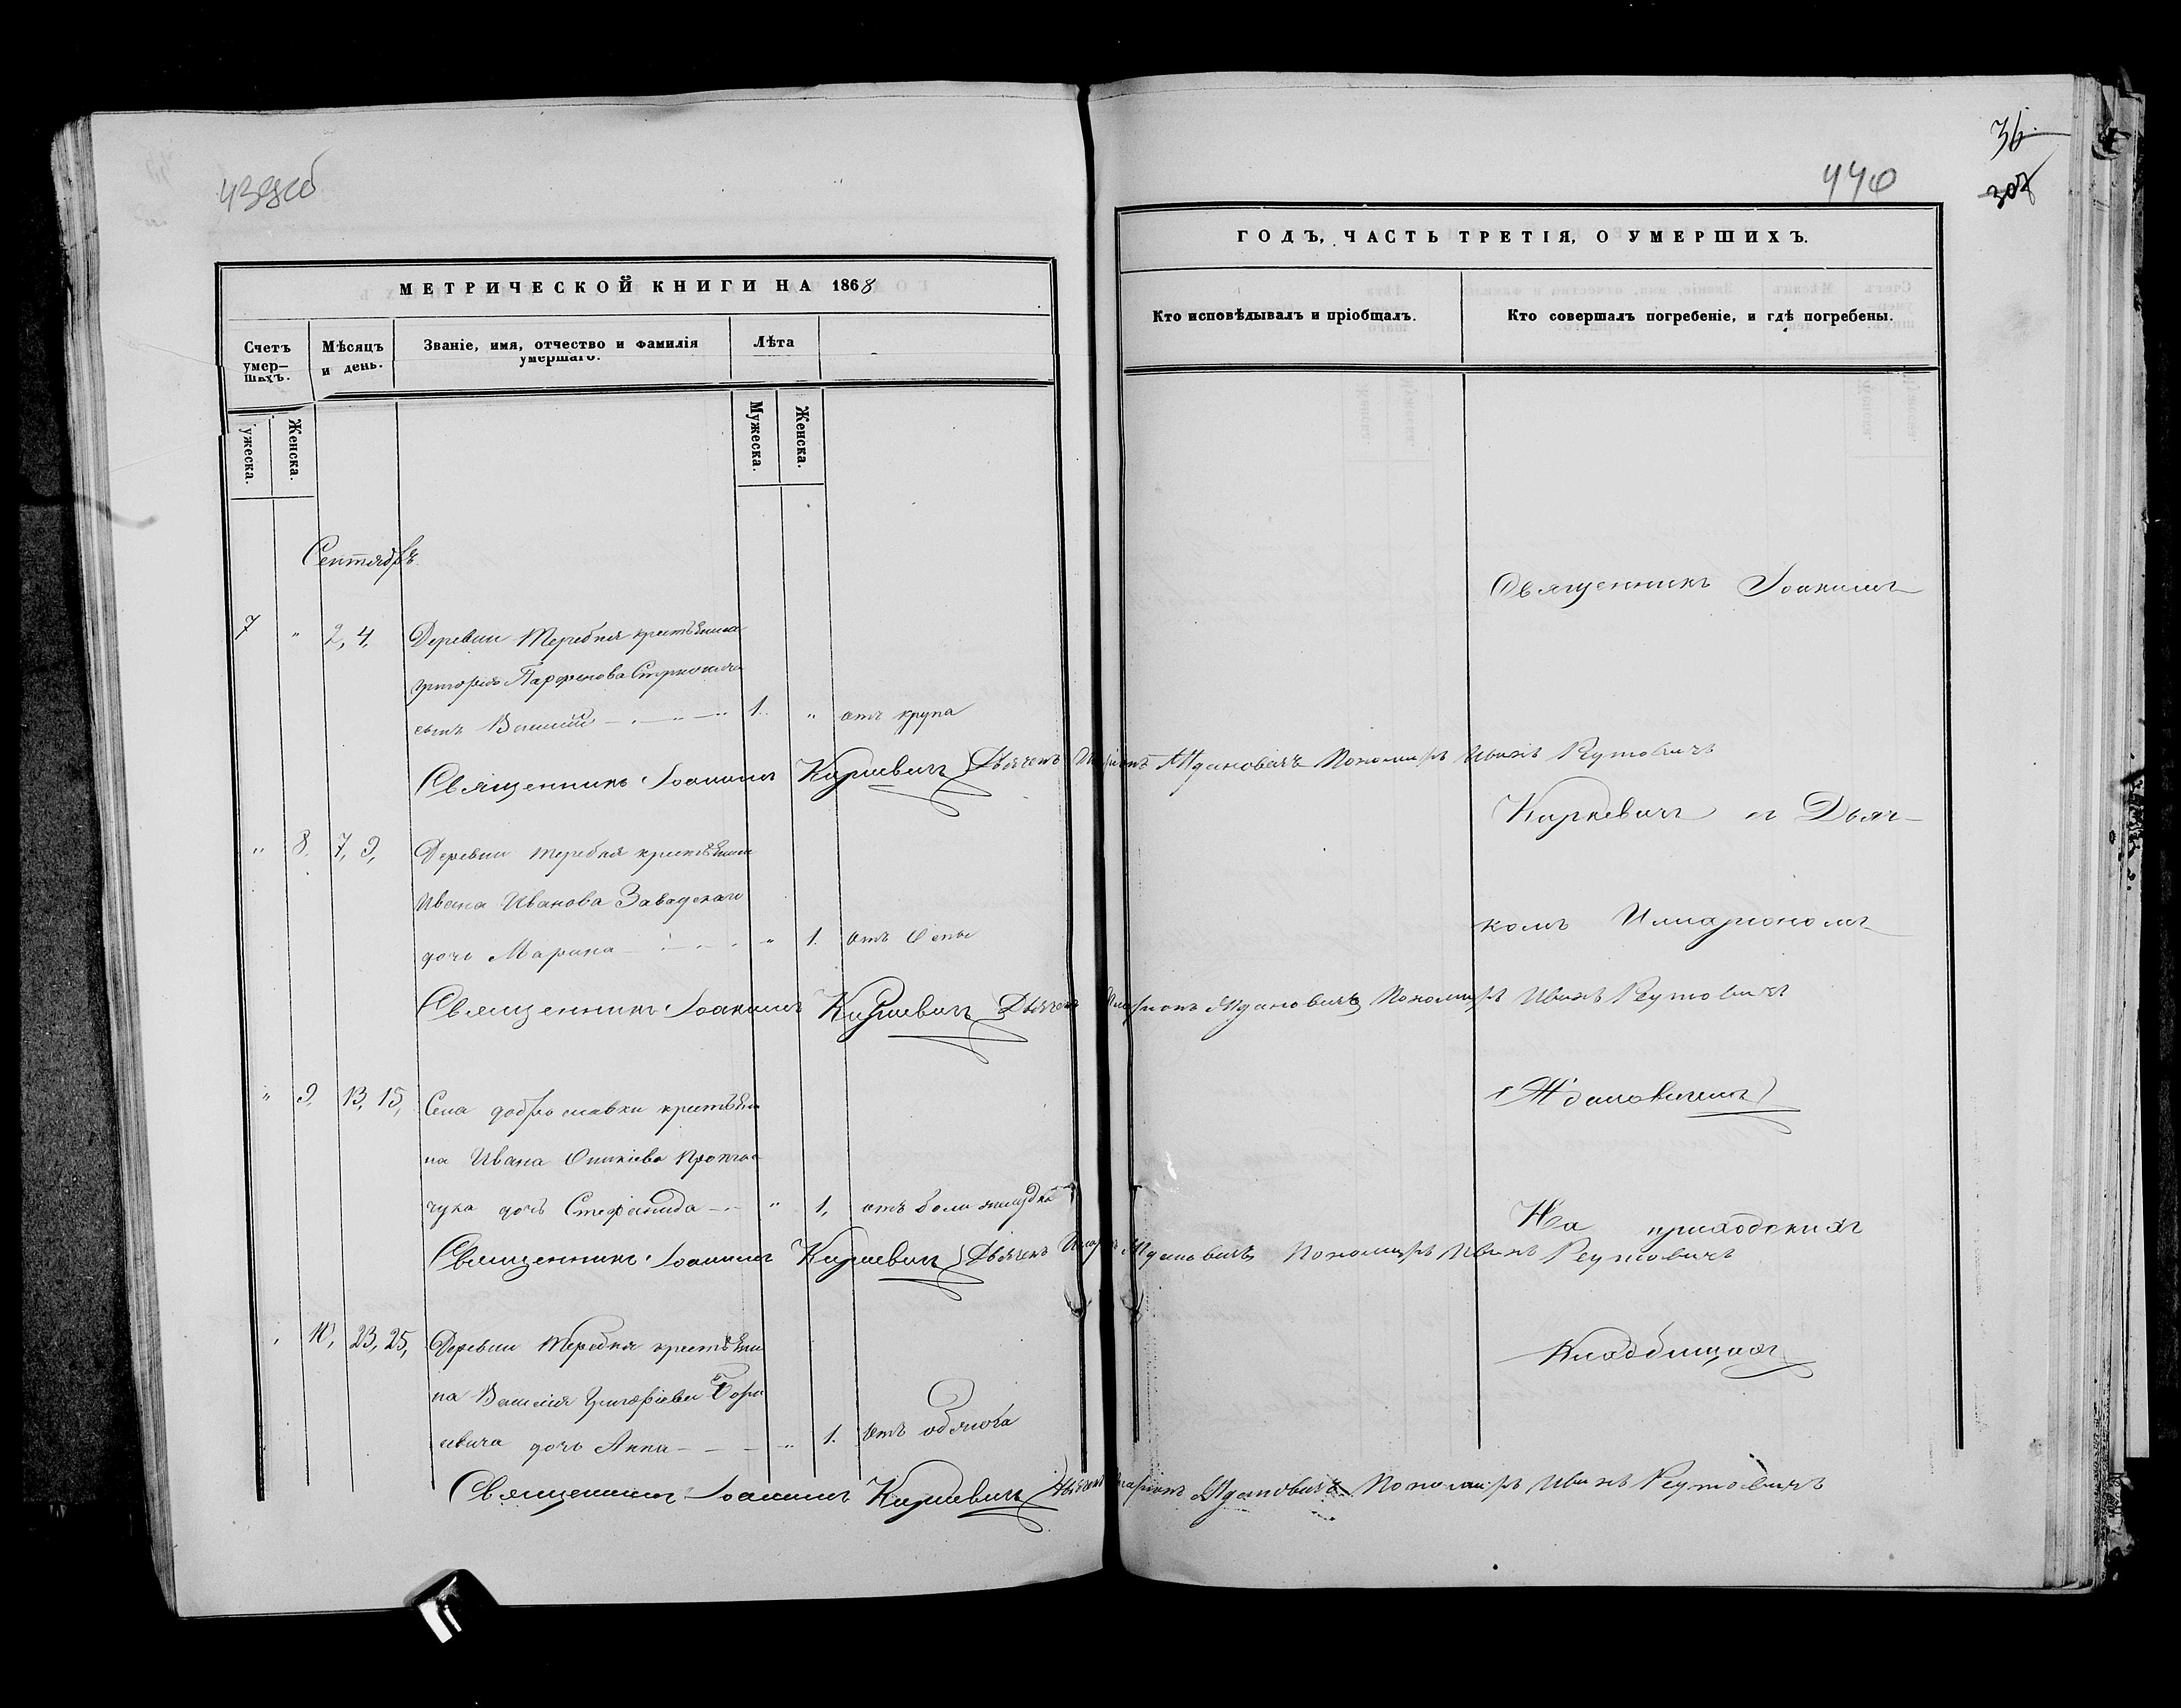 439об
МЕТРИЧЕСКОЙ КНИГИ НА 1868
Счетъ умер-шихъ.
Мѣсяцъ и день.
Званіе, имя, отчество и фамилія умершаго.
Лѣта
ужеска.
Женска.
Мужеска.
Женска.
Сентябрь
7 " 2, 4, Деревни Теребня крестьянина
Григорія Парфенова
сынъ Василій 1. " отъ крупа
Священникъ Іоакимъ Киркевичъ Дьячекъ Иларіонъ Ждановичъ Пономарь Иванъ Реутовичъ
" 8. 7, 9, Деревни Теребня крестьянина
Ивана Иванова Завадскаго
дочь Марина " 1. отъ оспы
Священникъ Іоакимъ Киркевичъ Дьячекъ Иларіонъ Ждановичъ Пономарь Иванъ Реутовичъ
" 9, 13, 15, Села доброславки крестьяни
на Ивана
чука дочь Стефанида " 1, отъ боли желудка
Священникъ Іоакимъ Киркевичъ Дьячекъ Иларіонъ Ждановичъ Пономарь Иванъ Реутовичъ
10, 23, 25, Деревни Теребня крестьяни
на Василія Григоріева Бори
севича дочь Анна " 1. отъ
Священникъ Іоакимъ Киркевичъ Дьячекъ Иларіонъ Ждановичъ Пономарь Иванъ Реутовичъ
36
440
308
ГОДЪ, ЧАСТЬ ТРЕТІЯ, О УМЕРШИХЪ.
Кто исповѣдывалъ и пріобщалъ.
Кто совершалъ погребеніе, и гдѣ погребены.
Священникъ Іоакимъ
Киркевичъ съ Дьяч-
комъ Иларіономъ
Ждановичемъ
На приходскихъ
Кладбищахъ